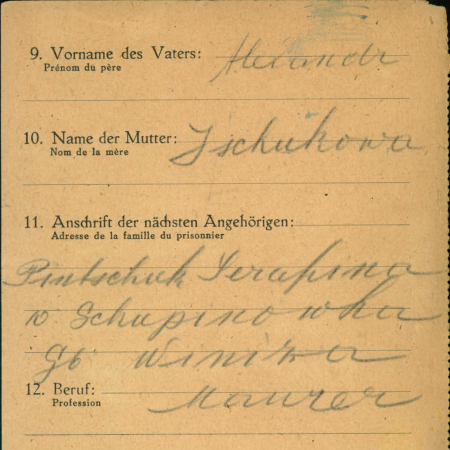 9. Vorname des Vaters: Alexandr
Prénom du père
10. Name der Mutter: Tschukowa
Nom de la mère
11. Anschrift der nächsten Angehörigen:
Adresse de la famille du prisonnier
Pintschuk Serapina
w Schapinowka
Gb Winiza
12. Beruf: Maurer
Profession